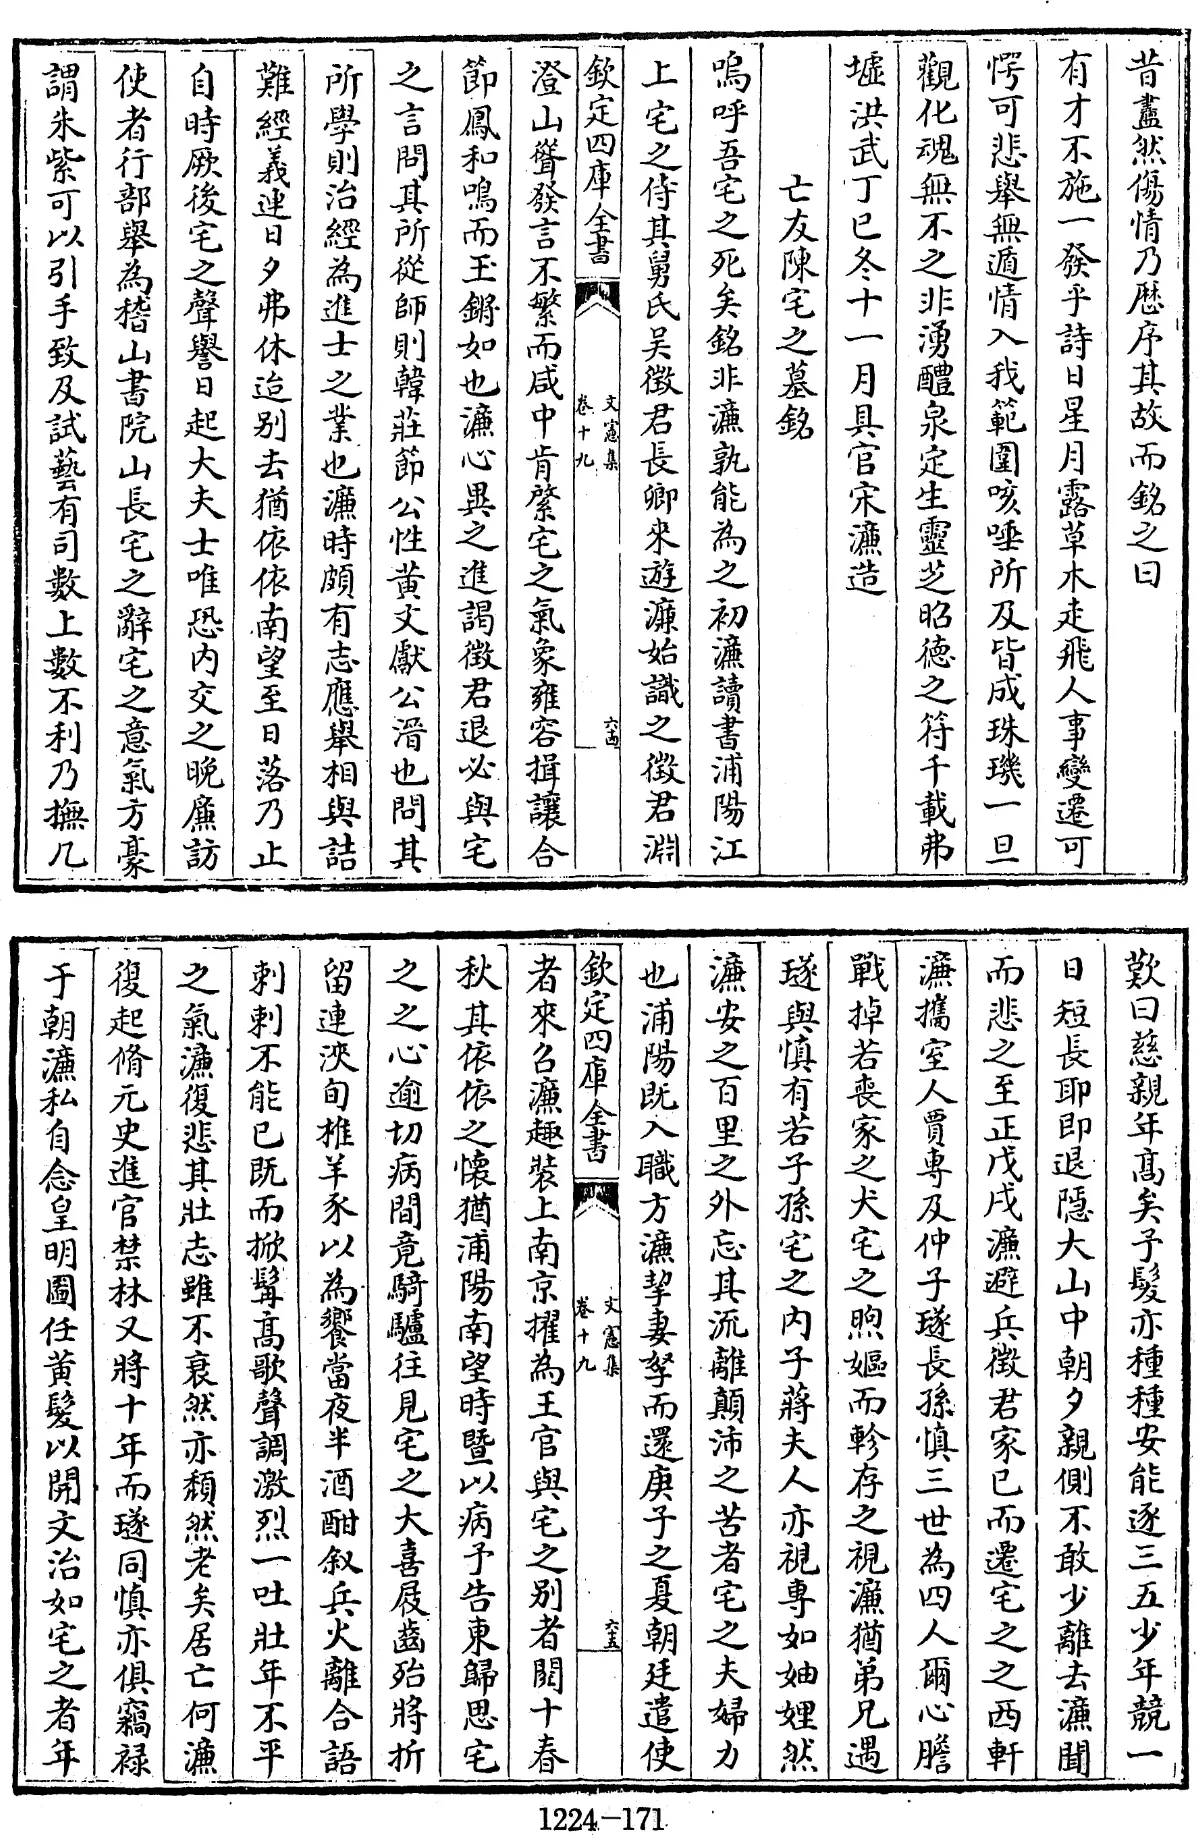 昔盡然傷情乃歷序其故而銘之曰
有才不施一發乎詩日星月露草木走飛人事變遷可
愕可悲舉無遁情入我範圍咳唾所及皆成珠璣一旦
觀化魂無不之非湧醴泉定生靈芝昭德之符千載弗
墟洪武丁巳冬十一月具官宋濂造
亡友陳宅之墓銘
嗚呼吾宅之死矣銘非濂孰能為之初濂讀書浦陽江
上宅之侍其舅氏吴徵君長卿來遊濂始識之徵君淵
欽定四庫全書
文憲集
卷十九
六十四
澄山聳發言不繁而咸中肯綮宅之氣象雍容揖讓合
節鳳和鳴而玉鏘如也濂心異之進謁徵君退必與宅
之言問其所從師則韓莊節公性黄文獻公溍也問其
所學則治經為進士之業也濂時頗有志應舉相與詰
難經義連日夕弗休迨别去猶依依南望至日落乃止
自時厥後宅之聲譽日起大夫士唯恐内交之晚廉訪
使者行部舉為稽山書院山長宅之辭宅之意氣方豪
謂朱紫可以引手致及試藝有司數上數不利乃撫几
歎曰慈親年髙矣予髮亦種種安能逐三五少年競一
日短長耶即退隱大山中朝夕親側不敢少離去濂聞
而悲之至正戊戌濂避兵徵君家已而遷宅之之西軒
濂攜室人賈專及仲子璲長孫慎三世為四人爾心膽
戰掉若喪家之犬宅之煦嫗而軫存之視濂猶弟兄遇
璲與慎有若子孫宅之内子蔣夫人亦視專如妯娌然
濂安之百里之外忘其流離顛沛之苦者宅之夫婦力
也浦陽既入職方濂挈妻孥而還庚子之夏朝廷遣使
欽定四庫全書
文憲集
卷十九
六十五
者來召濂趣裝上南京擢為王官與宅之别者閱十春
秋其依依之懷猶浦陽南望時暨以病予告東歸思宅
之之心逾切病間竟騎驢往見宅之大喜屐齒殆將折
留連浹旬椎羊豕以為饗當夜半酒酣叙兵火離合語
剌剌不能已既而掀髯髙歌聲調激烈一吐壯年不平
之氣濂復悲其壯志雖不衰然亦頽然老矣居亡何濂
復起脩元史進官禁林又將十年而璲同慎亦俱竊禄
于朝濂私自念皇明圖任黄髮以開文治如宅之者年
1224-171